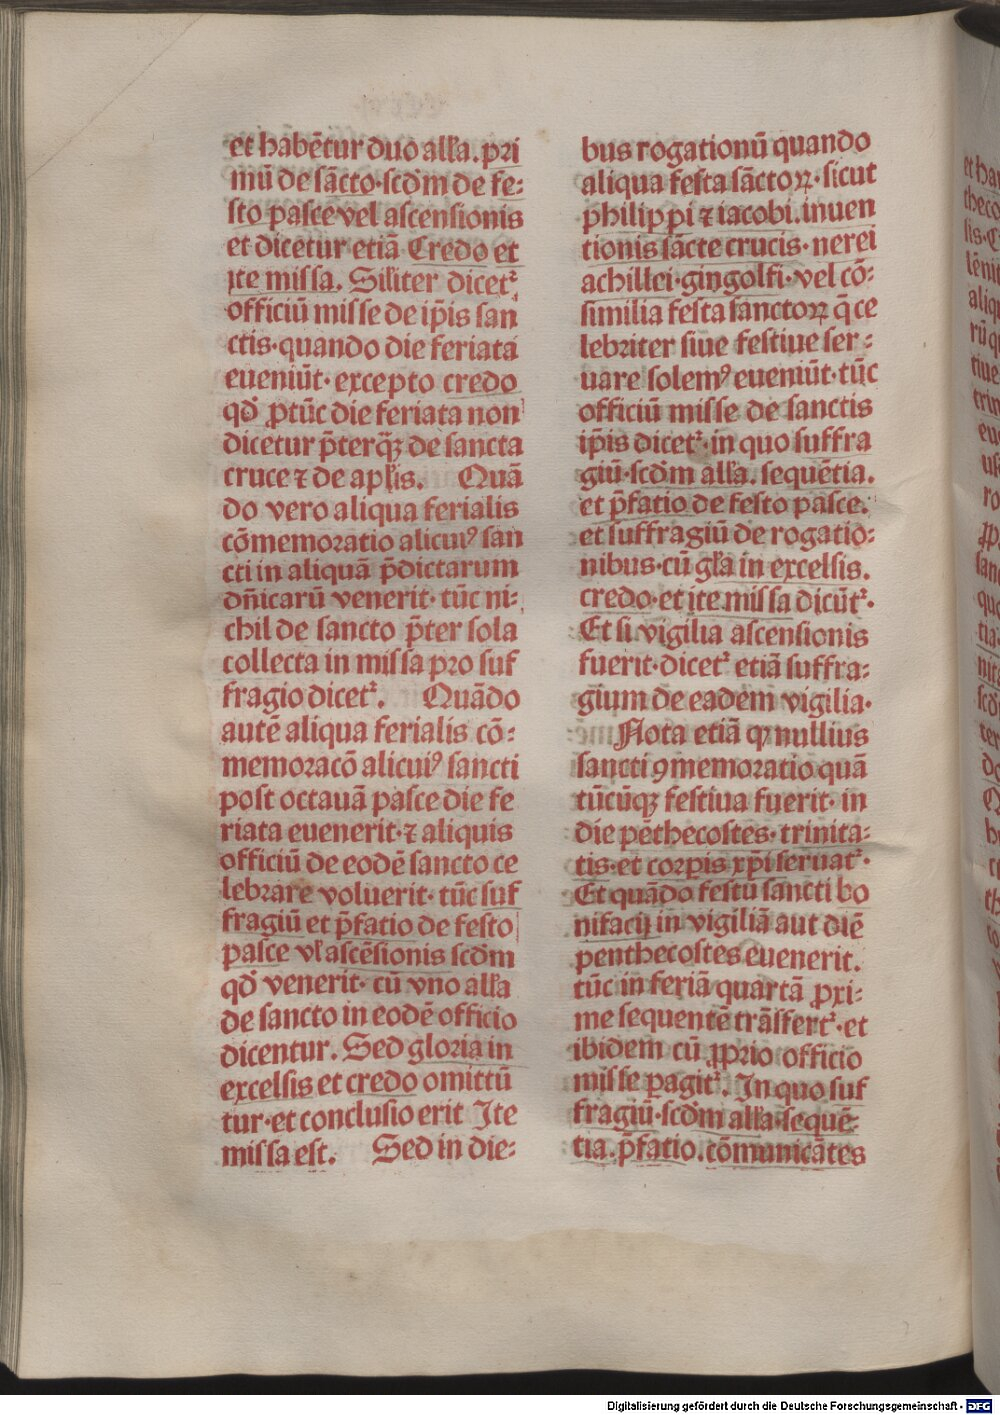 et habēt̄ur duo all̄a. pri
mū de sācto·scd̄m de fe-
sto pasce vel ascensionis
et dicetur etiā Credo et
jte missa. Siliter dicetꝛ
officiū misse de ip̄is san
ctis·quando die feriata
eueniūt·excepto credo
qd̄ ꝓtūc die feriata non
dicetur p̄terqꝫ de sancta
cruce ⁊ de apl̄is. Quā
do vero aliqua ferialis
cōmemoratio alicuiꝰ san
cti in aliquā p̄dictarum
dn̄icarū venerit·tūc ni-
chil de sancto p̄ter sola
collecta in missa pro suf
fragio dicetꝛ. Quādo
autē aliqua ferialis cō-
memoracō alicuiꝰ sancti
post octauā pasce die fe
riata euenerit·⁊ aliquis
officiū de eodē sancto ce
lebrare voluerit·tūc suf
fragiū et p̄fatio de festo
pasce vl̄ ascēsionis scd̄m
qd̄ venerit·cū vno all̄a
de sancto in eodē officio
dicentur. Sed gloria in
excelsis et credo omittū
tur·et conclusio erit Jte
missa est. Sed in die-
bus rogationū quando
aliqua festa sāctoꝝ·sicut
philippi ⁊ iacobi.inuen
tionis sācte crucis·nerei
achillei·gingolfi·vel cō-
similia festa sanctoꝝ q̄ ce
lebriter siue festiue ser-
uare solemꝰ eueniūt·tūc
officiū misse de sanctis
ip̄is dicetꝛ·in quo suffra
giū·scd̄m all̄a. sequētia.
et p̄fatio de festo pasce.
et suffragiū de rogatio-
nibus·cū gl̄a in excelsis.
credo·et jte missa dicūtꝛ.
Et si vigilia ascensionis
fuerit·dicetꝛ etiā suffra-
gium de eadem vigilia.
Nota etiā ꝙ nullius
sancti ꝯmemoratio quā
tūcūqꝫ festiua fuerit·in
die pēthecostes·trinita-
tis·et corꝑis xp̄i seruatꝛ.
Et quādo festū sancti bo
nifacij in vigiliā aut diē
penthecostes euenerit.
tūc in feriā quartā ꝓxi-
me sequentē trāsfertꝛ·et
ibidem cū ꝓprio officio
misse ꝑagitꝛ. In quo suf
fragiū·scd̄m all̄a·sequē-
tia. p̄fatio. cōmunicātes
Digitalisierung gefördert durch die Deutsche Forschungsgemeinschaft - DFG